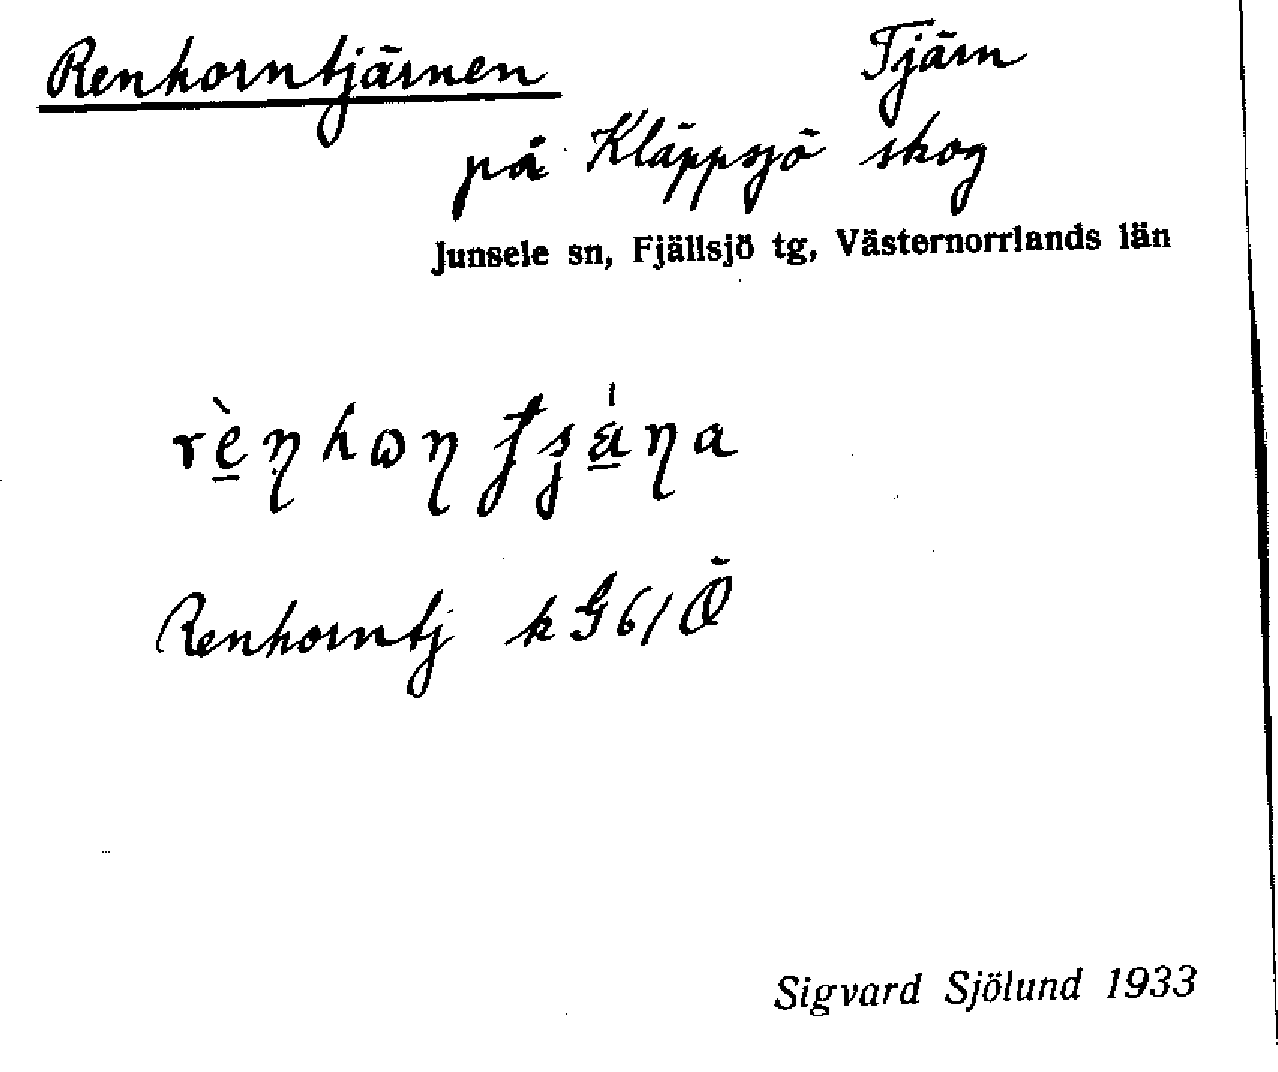 Renhorntjärnen Tjärn
på Kläppsjö skog
Junsele sn, Fjällsjö tg, Västernorrlands län
Renhorntj k G61 Ö
Sigvard Sjölund 1933